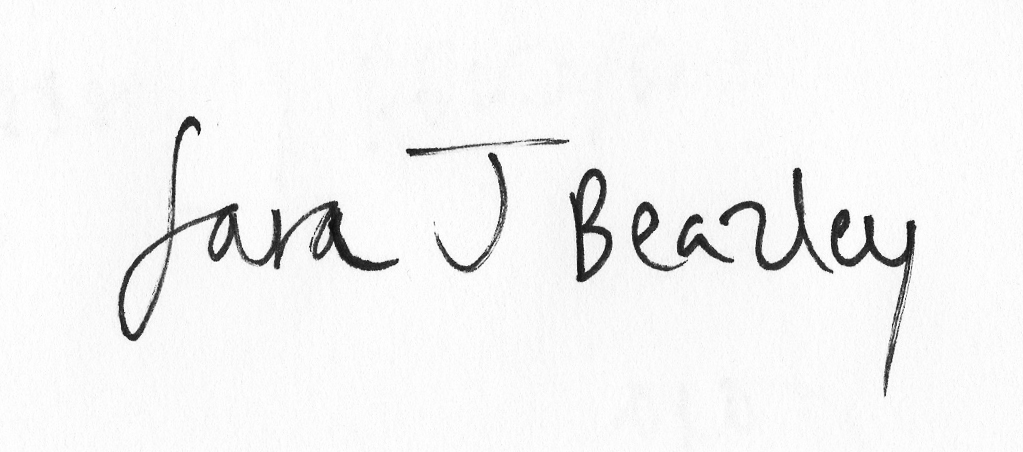 Sara J Beazley